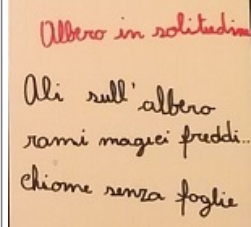 Albero in solitudine
Ali sull'albero
rami magici freddi..
chiome senza foglie